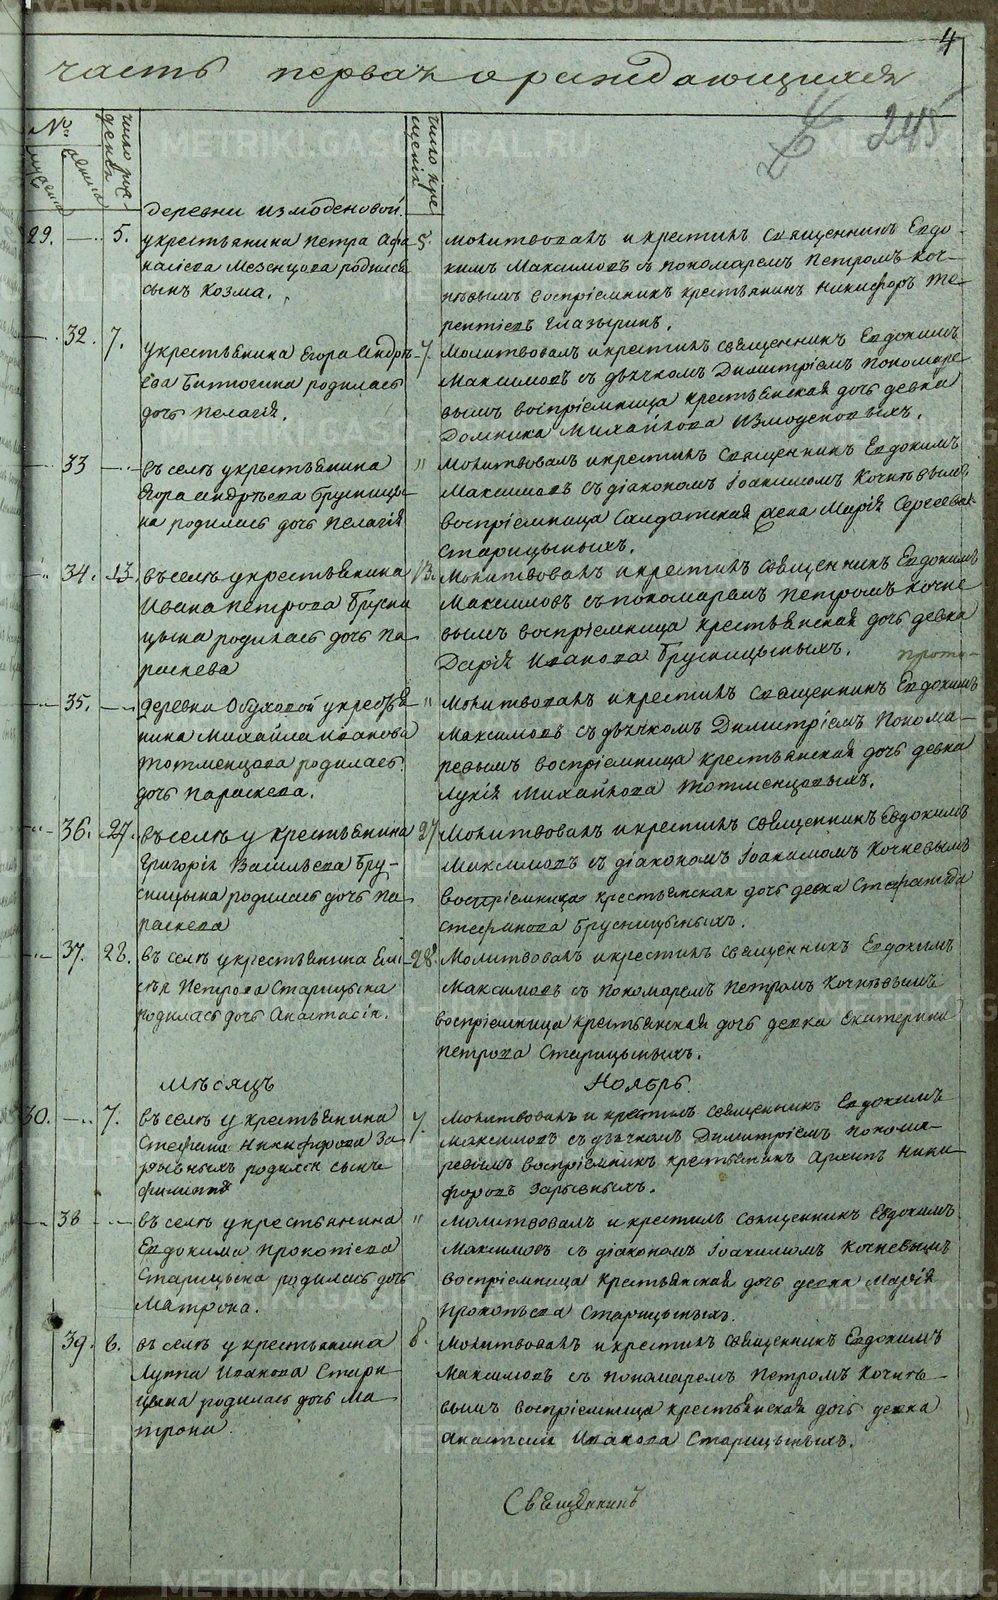 METRIKI.GASO-URAL.RU
4
часть первая о раждающихся
245
№
число рождения
число крещенія
мужеска
женска
деревни измоденовой
29. 5. укрестьянина петра Афа 5. молитвовалъ и крестилъ Священникъ Евдо-
насіева Мезенцова родился кимъ Максимовъ съ пономаремъ Петромъ Коч-
сынъ Козма. нѣвымъ воспріемникъ крестьянинъ Никифоръ Те-
рентіевъ Глазыринъ.
32. 7. укрестьянина Егора Андрѣ- 7. Молитвовалъ и крестилъ священникъ Евдокимъ
ева родилась Максимовъ съ дьячкомъ Димитріемъ Пономаре
дочь Пелагія. вымъ воспріемница крестьянская дочь девка
Домника Михайлова Измоденовыхъ.
33 въ селѣ укрестьянина " Молитвовалъ и крестилъ Священникъ Евдокимъ
Егора Андрѣева Брусницы- Максимовъ съ діакономъ Іоакимомъ Кочнѣвымъ
на родилась дочь Пелагія воспріемница Салдатская жена Марія Сергеева
Старицыныхъ.
34. 13. въ селѣ укрестьянина 13. Молитвовалъ и крестилъ священникъ Евдокимъ
Ивана петрова Брусни Максимовъ съ пономаремъ Петромъ Кочне
цына родилась дочь Па вымъ воспріемница крестьянская дочь девка
раскева Дарія Иванова Брусницыныхъ.
35. деревни Обуховой укресть " Молитвовалъ и крестилъ Священникъ Евдокимъ
янина Михайла Иванова Максимовъ съ дьячкомъ Димитріемъ Понома-
Тотменцова родилась ревымъ воспріемница крестьянская дочь девка
дочь Параскева. Лукія Михайлова Тотменцовыхъ.
36. 27. въ селѣ у крестьянина 27 Молитвовалъ и крестилъ священникъ Евдокимъ
Григорія Васильева Бру- Максимовъ съ діакономъ Іоакимомъ Кочневымъ
сницына родилась дочь Па воспріемница крестьянская дочь девка Стефанида
раскева Стефанова Брусницыныхъ.
37. 28. въ селѣ укрестьянина Ели 28. Молитвовалъ и крестилъ священникъ Евдокимъ
сѣя Петрова Старицына Максимовъ съ пономаремъ Петромъ Кочнѣвымъ
родилась дочь Анастасія. воспріемница крестьянская дочь девка Екатерина
Петрова Старицыныхъ.
Мѣсяцъ Ноябрь
30. 7. въ селѣ у крестьянина 7. Молитвовалъ и крестилъ священникъ Евдокимъ
Стефана Никифорова За Максимовъ съ дьячкомъ Димитріемъ понома-
рывныхъ родился сынъ ревымъ воспріемникъ крестьянинъ Архипъ Ники
Филиппъ форовъ Зарывныхъ.
38 въ селѣ укрестьянина " Молитвовалъ и крестилъ священникъ Евдокимъ
Евдокима Прокопіева Максимовъ съ діакономъ Іоакимомъ Кочневымъ
Старицына родилась дочь воспріемница Крестьянская дочь девка Марія
Матрона. Прокопьева Старицыныхъ.
39. 8. въ селѣ у крестьянина 8. Молитвовалъ и крестилъ священникъ Евдокимъ
Луппа Иванова Стари- Максимовъ съ пономаремъ Петромъ Кочнѣ-
цына родилась дочь Ма вымъ воспріемница крестьянская дочь девка
трона. Анастасія Иванова Старицыныхъ.
Священникъ